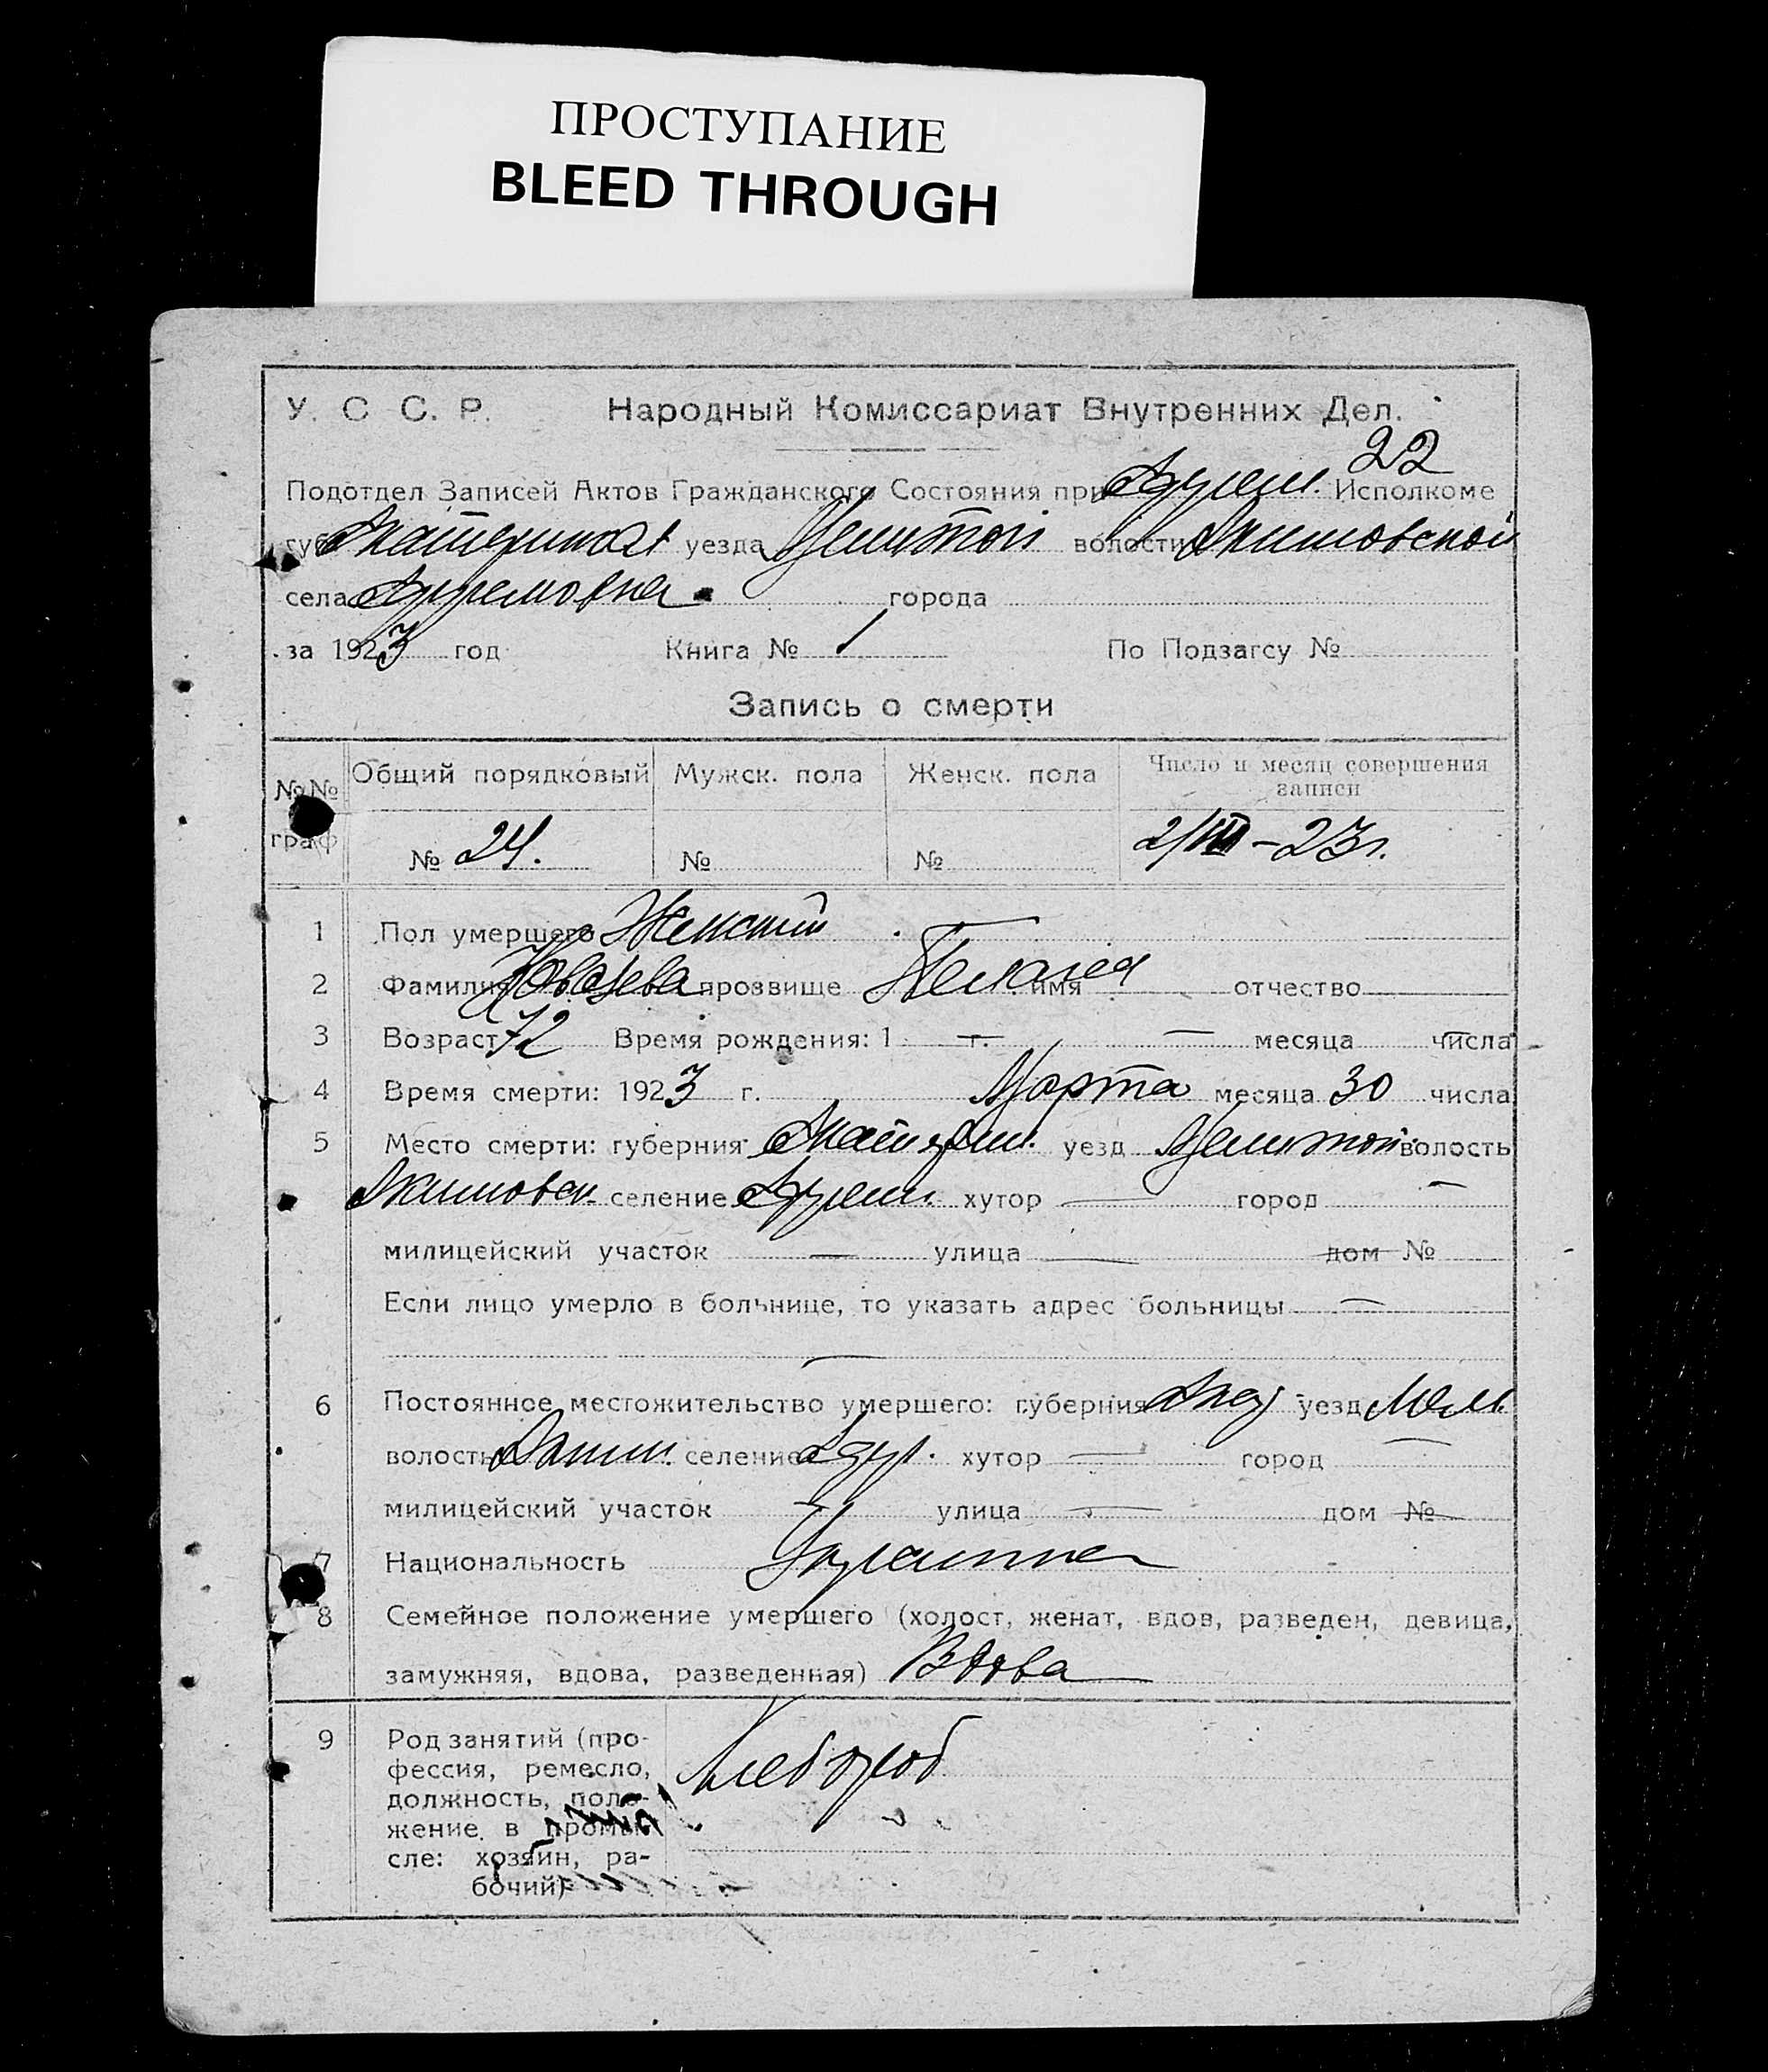 ПРОСТУПАНИЕ
BLEED THROUGH
У. С С. Р. Народный Комиссариат Внутренних Дел.
22
Подотдел Записей Актов Гражданского Состояния при Исполкоме
губ. уезда волости Акимовской
села города
за 1923 год Книга № 1 По Подзагсу №
Запись о смерти
№№ граф Общий порядковый Мужск. пола Женск. пола Число и месяц совершения записи
№ 24. № № 2/ – 23 г.
1 Пол умершего Женский
2 Фамилия прозвище Пелагея имя отчество
3 Возраст 72 Время рождения: 1 — г. — месяца числа
4 Время смерти: 1923 г. Марта месяца 30 числа
5 Место смерти: губерния Екатерин. уезд волость
Акимовск. селение хутор — город —
милицейский участок — улица — дом №
Если лицо умерло в больнице, то указать адрес больницы —
—
6 Постоянное местожительство умершего: губерния уезд Мел.
волость Аким. селение хутор — город —
милицейский участок — улица — дом №
7 Национальность Украинка
8 Семейное положение умершего (холост, женат, вдов, разведен, девица,
замужняя, вдова, разведенная) Вдова
9 Род занятий (про- Хлебороб
фессия, ремесло,
должность, поло-
жение в промы-
сле: хозяин, ра-
бочий)